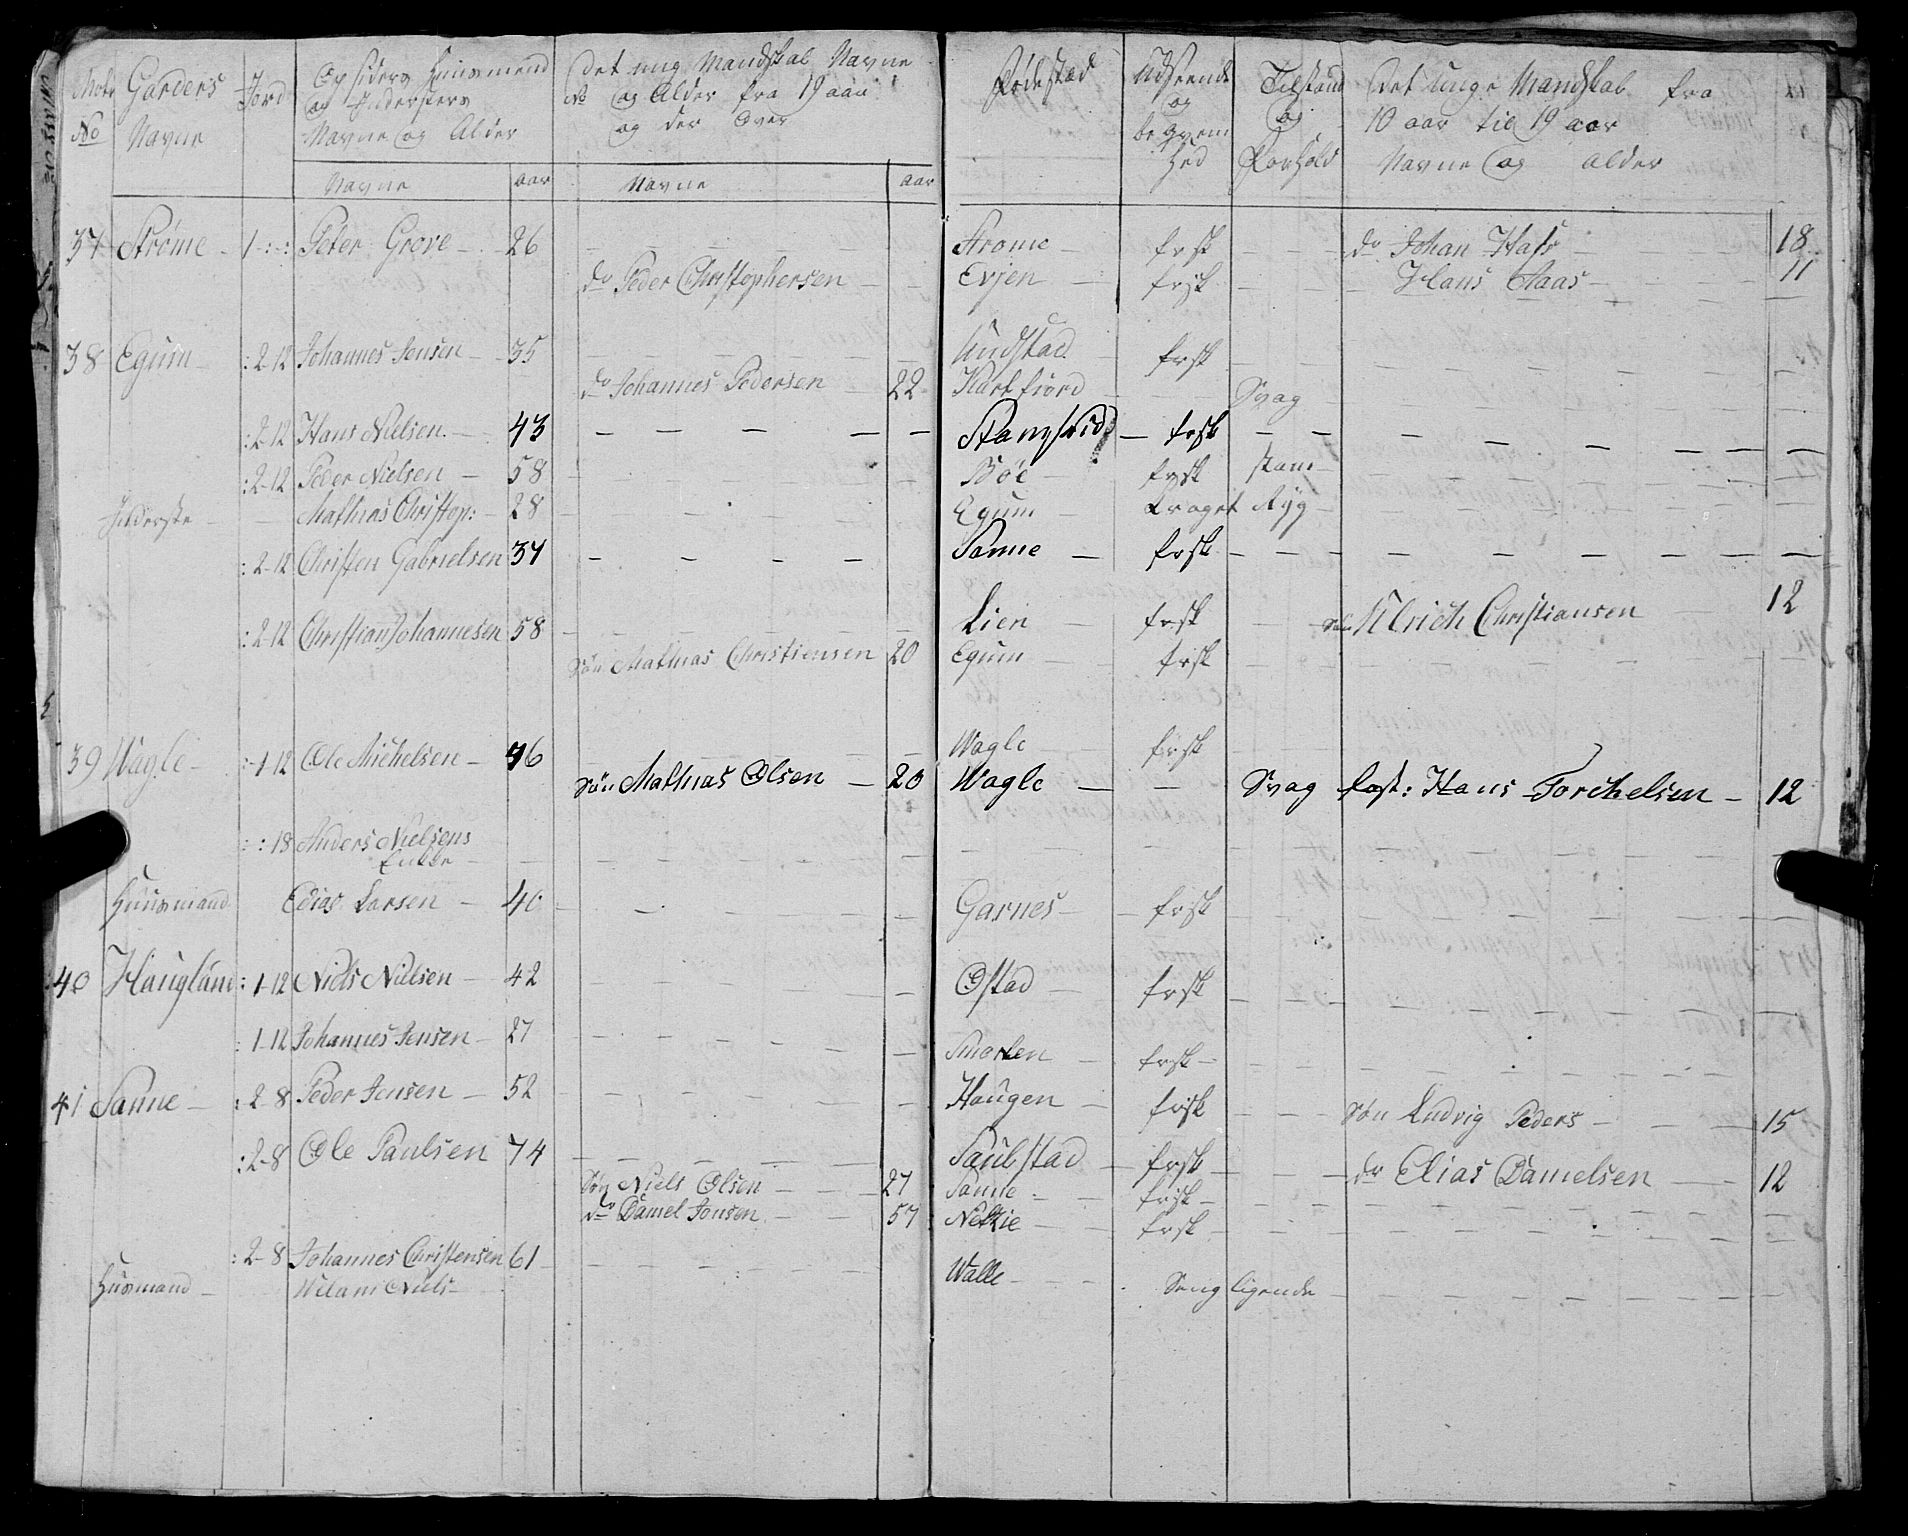 No Gaarders Navne Jord Opsiders Huusmend og Inderster Navne og Alder Navne aar Det ung Mandskab Navne No og Alder fra 19 aar og der Over Navne aar Fødestæd Udseende og beqvem hed Tilstand og Forhold Det unge Mandskab fra 10 aar til 19 aar Navne og alder
37 Strøme 1-:-: Peter Grove 26 Strøme frsk do Johan Hass 18
do Peder Christophersen Evjen frisk Hans Haas 11
38 Egum :2-12 Johannes Jensen 35 Undstad frsk
do Johannes Pedersen 22 Kartfiord Svag
:2-12 Hans Nielsen 43 frsk
:2-12 Peder Nielsen 58 Böe frsk
Inderste Mathias Christop: 28 Egum Kroget Ryg
:2-12 Christen Gabrielsen 37 Sanne frsk
:2-12 Christian Johannesen 58 Lien frsk Søn Ulrich Christiansen 12
Søn Mathias Christiensen 20 Egum frsk
39 Wagle :-1-12 Ole Michelsen 46 Wagle frsk
Søn Mathias Olsen 20 Wagle Svag fost: Hans Torchelsen 12
: :18 Anders Nielsens
Enke
Huusmand Edias Larsen 40 Garnes frsk
40 Haugland :1-12 Niels Nielsen 42 Ostad frsk
:1-12 Johannes Jensen 27 Smorten frsk
41 Sanne :2-8 Peder Jensen 52 Haugen frisk Søn Ludvig Peders 15
:2-8 Ole Paulsen 74 Saulstad frsk do Elias Danielsen 12
Søn Niels Olsen 27 Sanne frisk
do Daniel Jonsen 57 frsk
:2-8 Johannes Christensen 61 Walle Seng ligende
Huusmand Niels